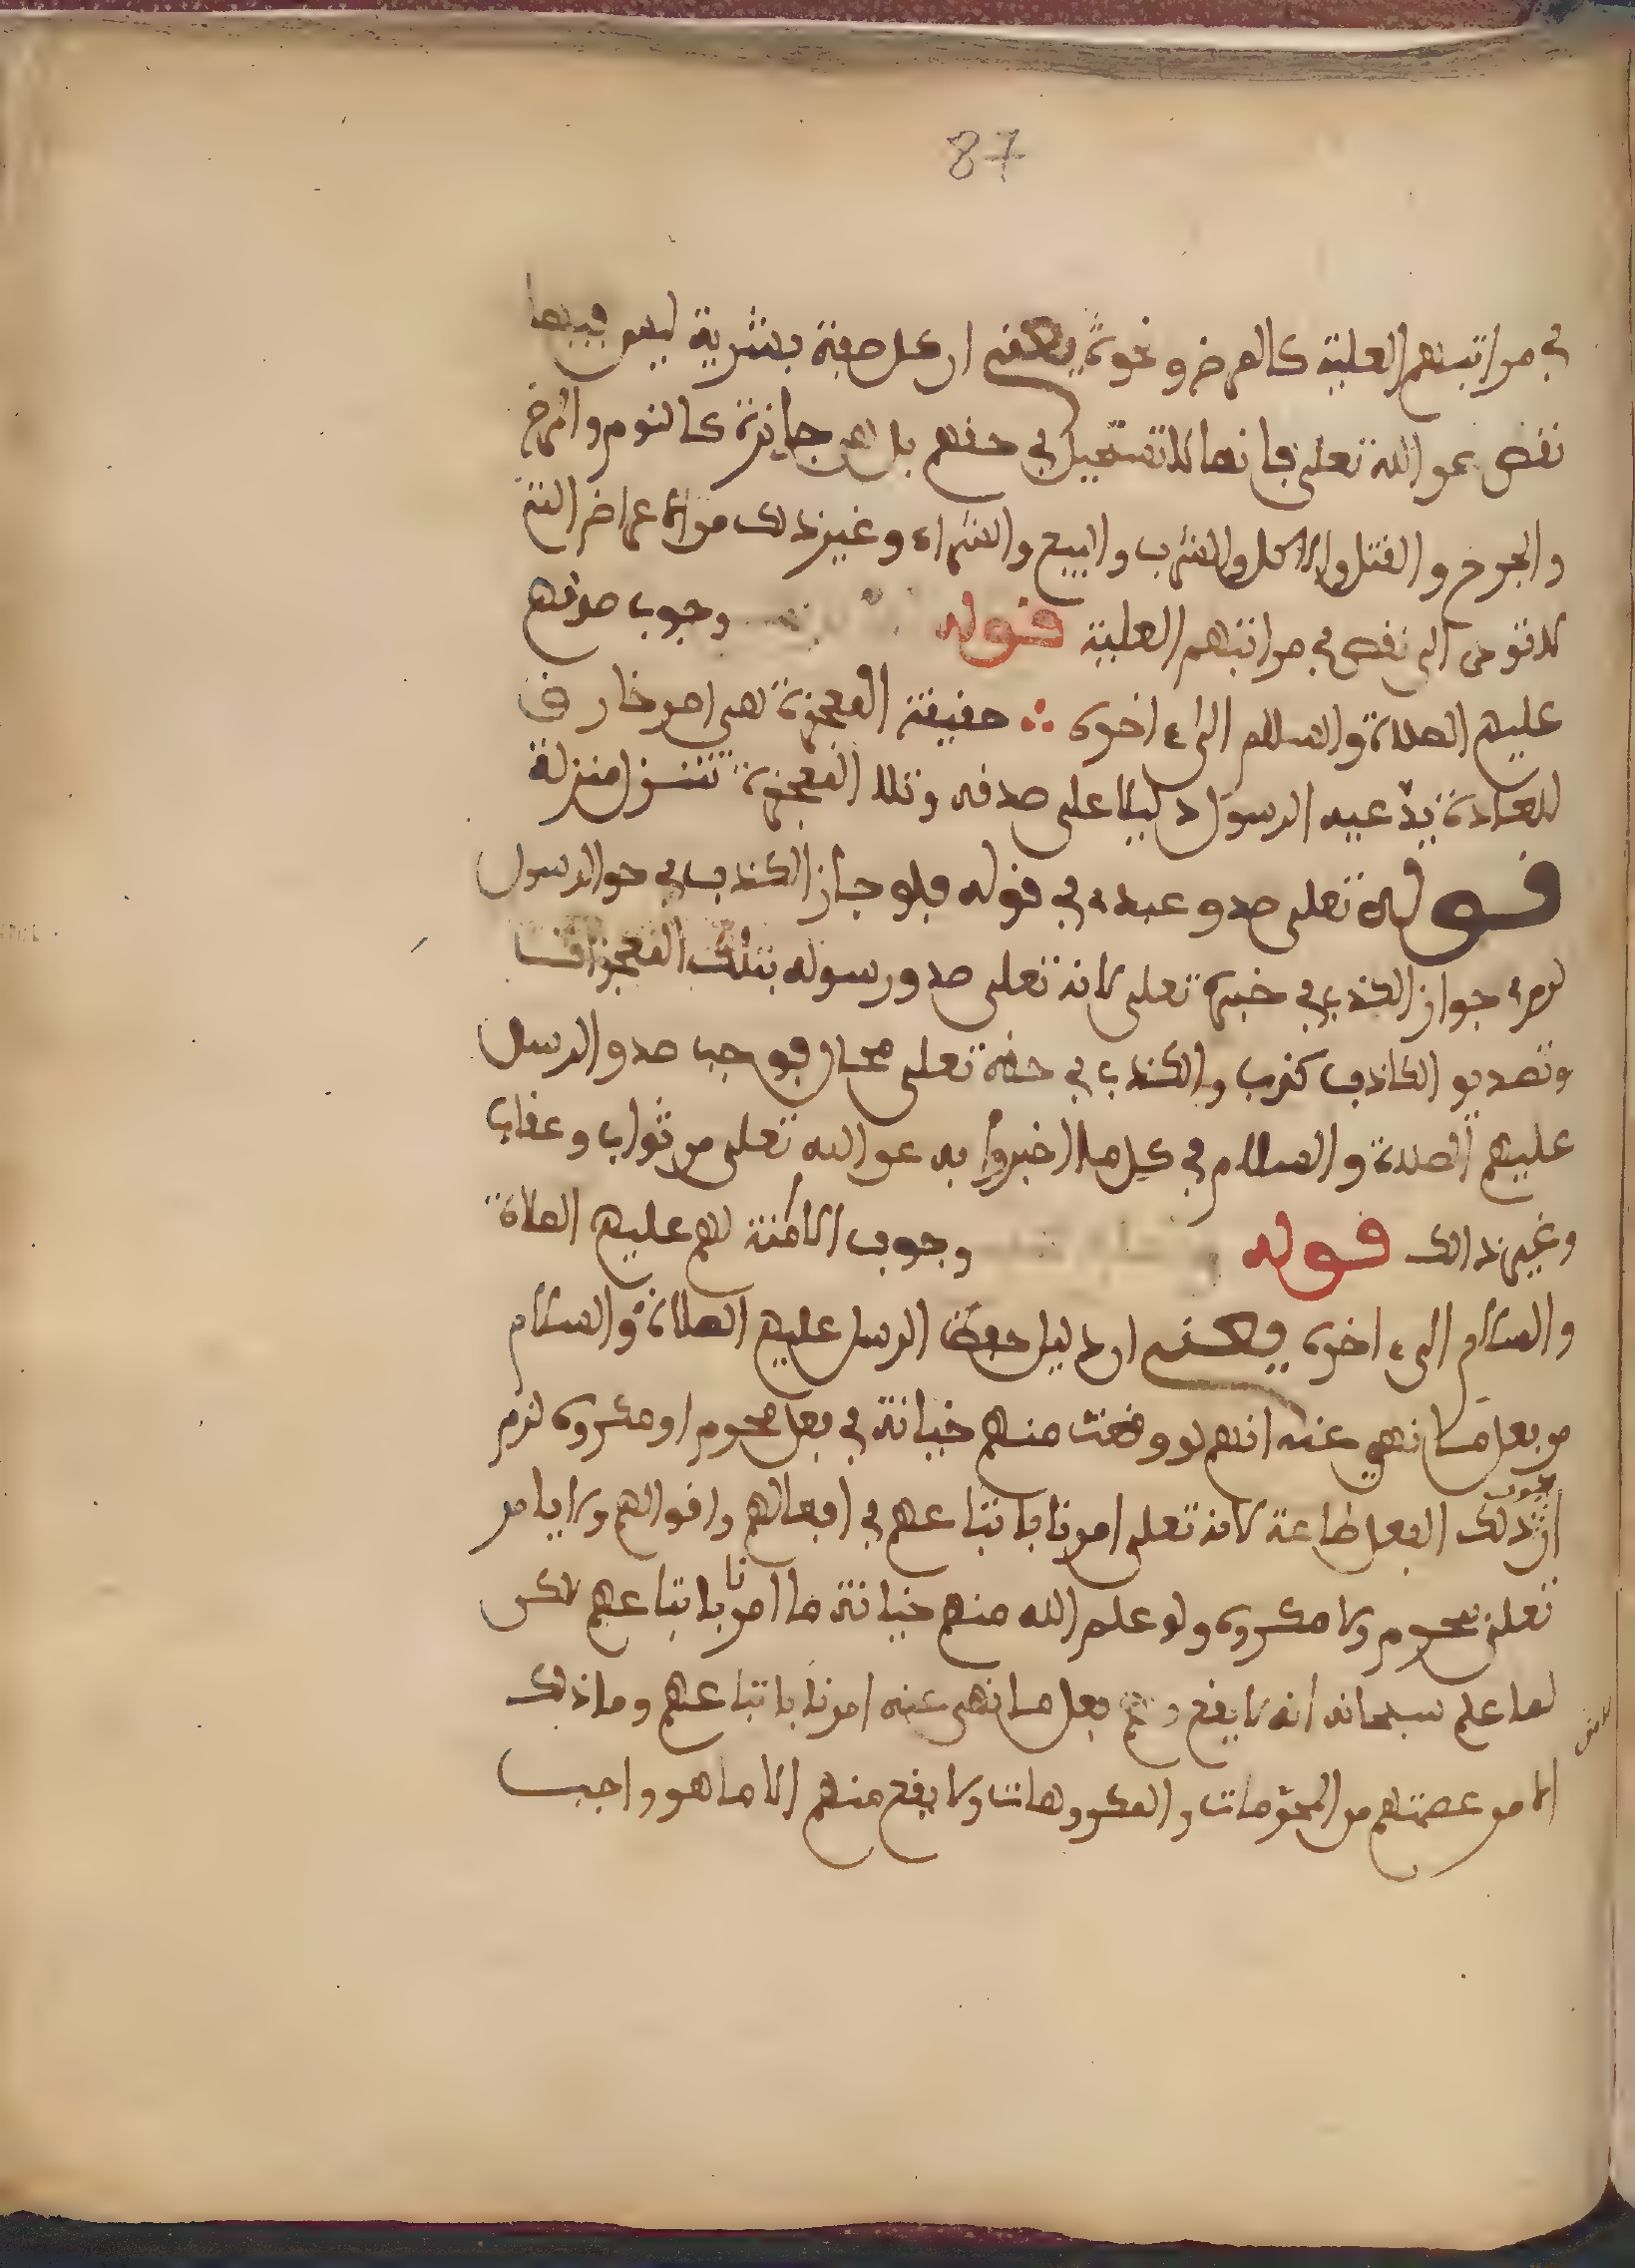 87
في مراتبهم العلية كالمرض ونحوه يعني ان كل صفة بشرية ليس فيها
نقص عن الله تعلى فانها لا تستحيل في حقهم بل هي جايزة كالنوم والمرض
والجرح والقتل والاكل والشرب والبيع والشراء وغير ذلك من الاعراض التي
لا تؤدي الى نقص في مراتبهم العلية قوله وجوب صدقهم
عليهم الصلاة والسلام الى ءاخره حقيقة المعجزة هي امر خارق
للعادة يدعيه الرسول دليلا على صدقه وتلك المعجزة تتنزل منزلة
قوله تعلى صدق عبده في قوله فلو جاز الكذب في حق الرسول
لزم جواز الكذب في خبره تعلى لانه تعلى صدق رسوله بتلك المعجزات
وتصديق الكاذب كذب والكذب في حقه تعلى محال فوجب صدق الرسل
عليهم الصلاة والسلام في كل ما اخبروا به عن الله تعلى من ثواب وعقاب
وغير ذالك قوله وجوب الامنة لهم عليهم الصلاة
والسلام الى ءاخره يعني ان دليل حفظ الرسل عليهم الصلاة والسلام
من فعل ما نهي عنه انهم لو وقعت منهم خيانة في فعل محرم او مكروه لزم
ان يكون ذلك الفعل طاعة لانه تعلى امرنا باتباعهم في افعالهم واقوالهم ولا يامر
تعلى بمحرم ولا مكروه ولو علم الله منهم خيانة ما امرنا باتباعهم لكن
لما علم سبحانه انه لا يقع فعل ما نهى عنه امرنا باتباعهم وما ذلك
الا من عصمتهم من المحرمات والمكروهات ولا يقع منهم الا ما هو واجب